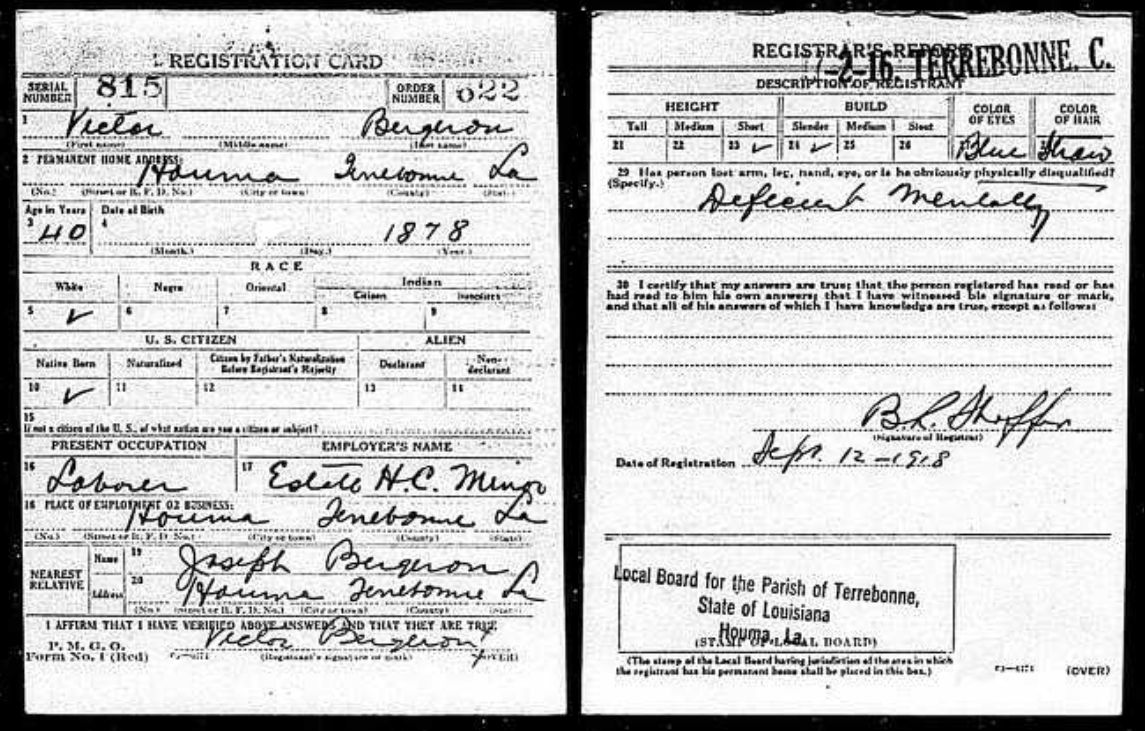 REGISTRATION CARD
SERIAL NUMBER 815 ORDER NUMBER 622
1 Victor Bergeron
(First name) (Middle name) (Last name)
2 PERMANENT HOME ADDRESS:
Houma Terrebonne La
(No.) (Street or R. F. D. No.) (City or town) (County) (State)
Age in Years Date of Birth
3 40 4 1878
(Month.) (Day.) (Year.)
RACE
White Negro Oriental Indian
Citizen Noncitizen
5 ✓ 6 7 8 9
U. S. CITIZEN ALIEN
Native Born Naturalized Citizen by Father's Naturalization Before Registrant's Majority Declarant Non-declarant
10 ✓ 11 12 13 14
15
If not a citizen of the U. S., of what nation are you a citizen or subject?
PRESENT OCCUPATION EMPLOYER'S NAME
16 Laborer 17 Estate H.C. Minor
18 PLACE OF EMPLOYMENT OR BUSINESS:
Houma Terrebonne La
(No.) (Street or R. F. D. No.) (City or town) (County) (State)
NEAREST RELATIVE
Name 19 Joseph Bergeron
Address 20 Houma Terrebonne La
(No.) (Street or R. F. D. No.) (City or town) (County) (State)
I AFFIRM THAT I HAVE VERIFIED ABOVE ANSWERS AND THAT THEY ARE TRUE
P. M. G. O.
Form No. 1 (Red)
Victor Bergeron
(Registrant's signature or mark) (OVER)
REGISTRAR'S REPORT
-2-16. TERREBONNE. C.
DESCRIPTION OF REGISTRANT
HEIGHT BUILD COLOR OF EYES COLOR OF HAIR
Tall Medium Short Slender Medium Stout
21 22 23 ✓ 24 ✓ 25 26 Blue Straw
29 Has person lost arm, leg, hand, eye, or is he obviously physically disqualified?
(Specify.)
Deficient Mentally
30 I certify that my answers are true; that the person registered has read or has
had read to him his own answers; that I have witnessed his signature or mark,
and that all of his answers of which I have knowledge are true, except as follows:
B.L. Shaffer
(Signature of Registrar)
Date of Registration Sept. 12-1918
Local Board for the Parish of Terrebonne,
State of Louisiana
Houma, La.
(STAMP OF LOCAL BOARD)
(The stamp of the Local Board having jurisdiction of the area in which
the registrant has his permanent home shall be placed in this box.)
(OVER)